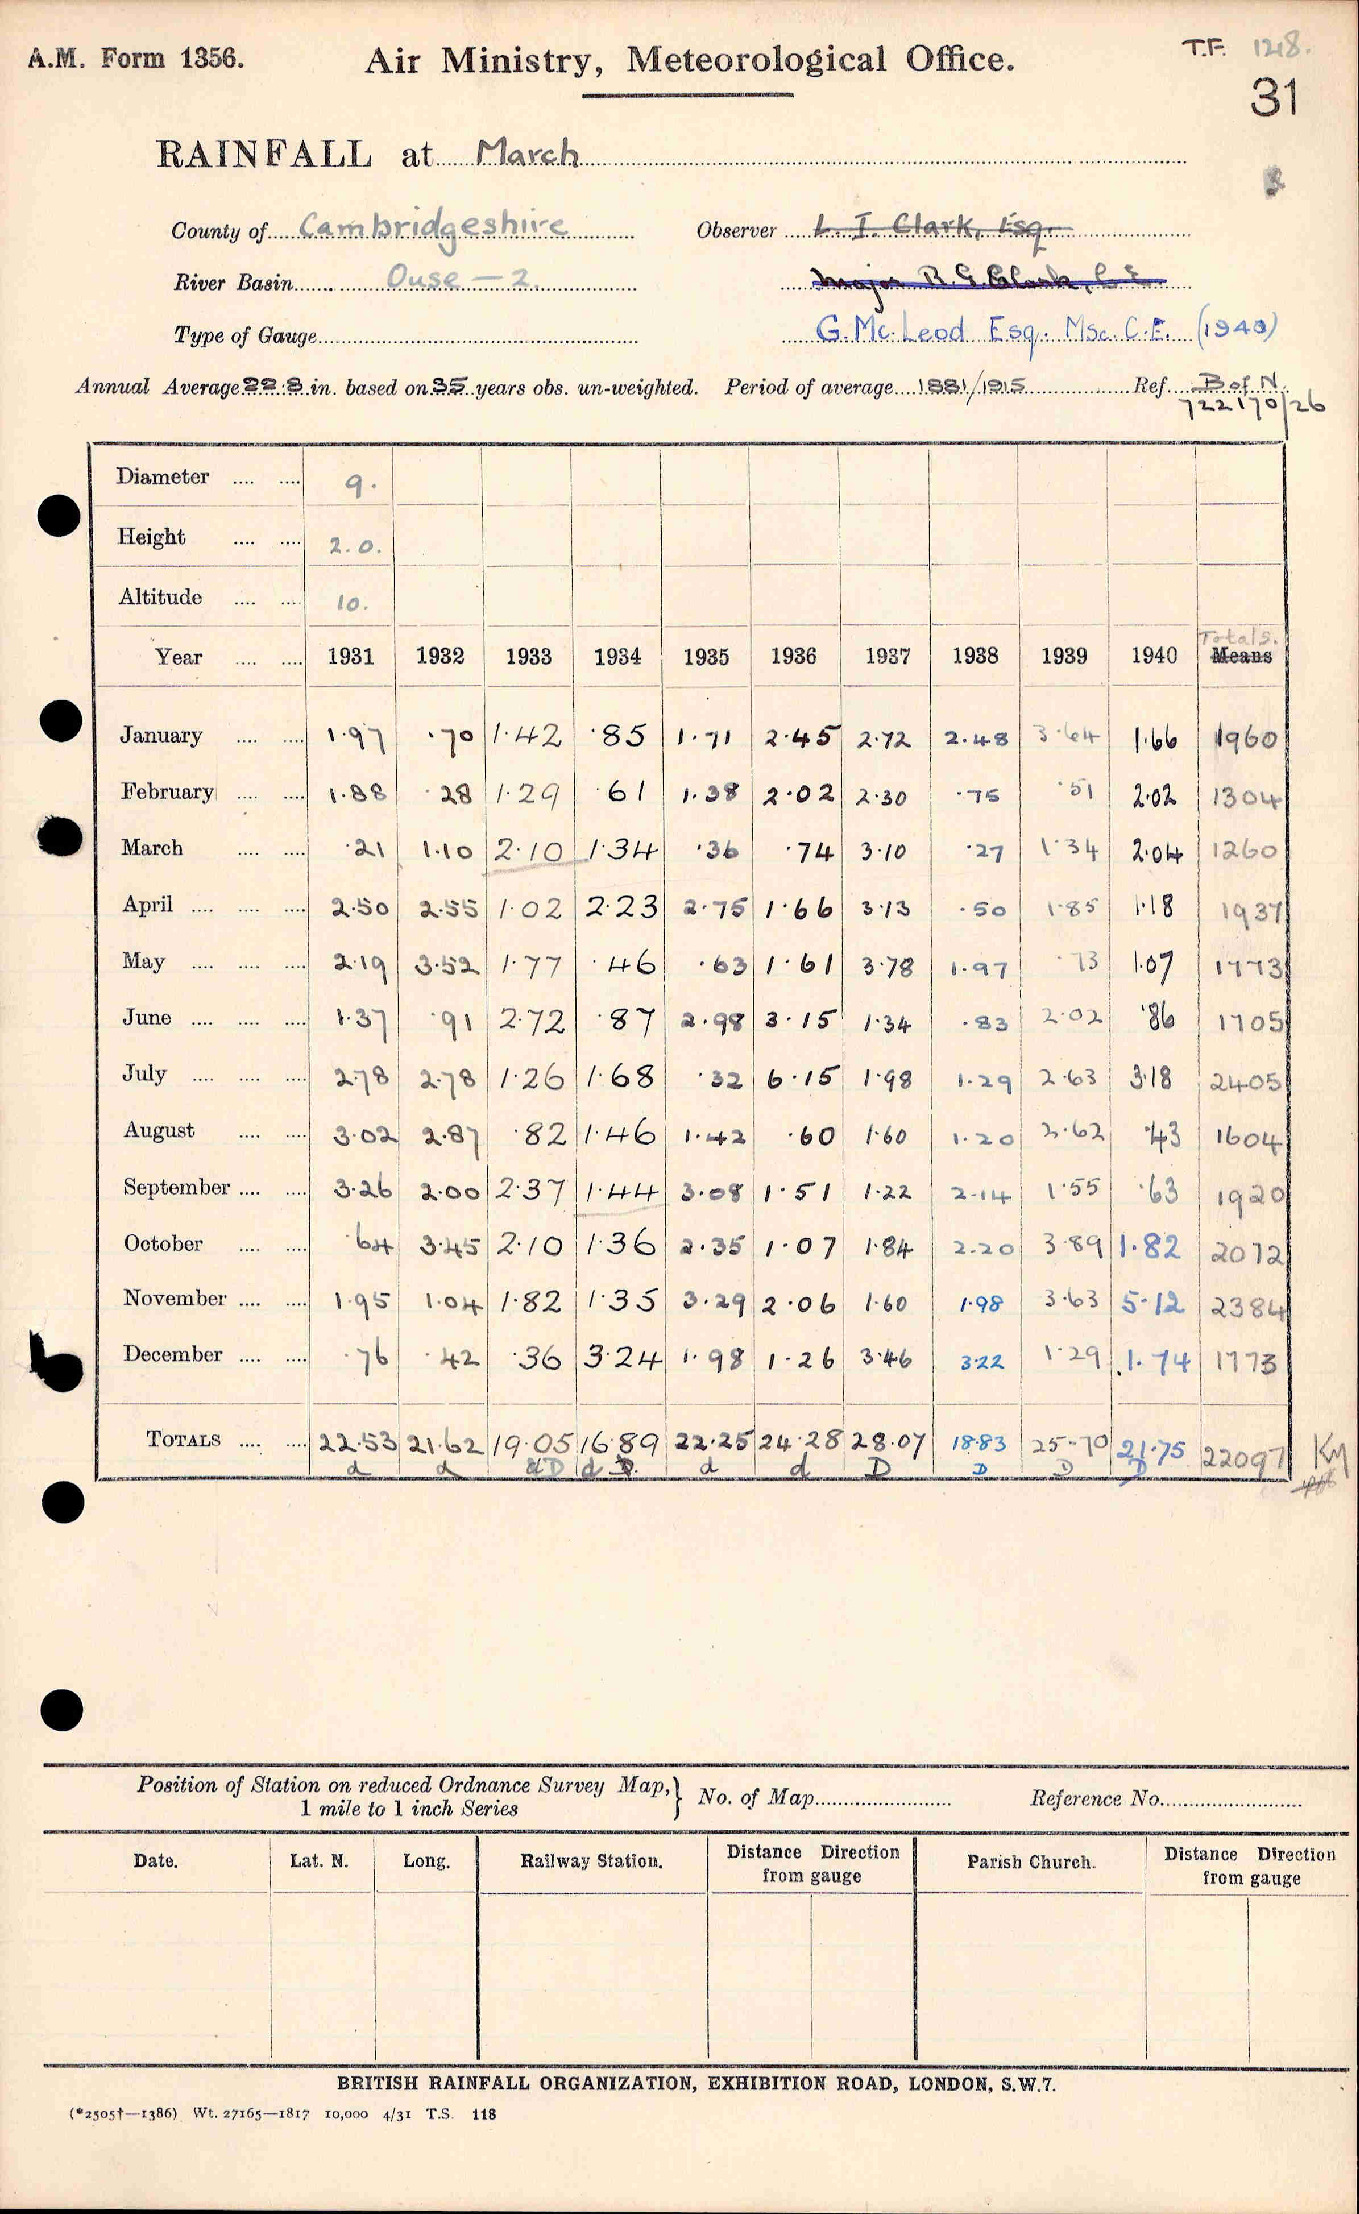 A.M. Form 1356. Air Ministry, Meteorological Office. T.F. 1218.
31
RAINFALL at March
County of Cambridgeshire Observer L. I. Clark, Esq.
River Basin Ouse — 2. Major R. G. Clark, C E
Type of Gauge G. Mc. Leod Esq. Msc. C.E. (1940)
Annual Average 22.8 in. based on 35 years obs. un-weighted. Period of average 1881/1915 Ref. B of N.
722170/26
Diameter 9.
Height 2.0.
Altitude 10.
Totals.
Year 1931 1932 1933 1934 1935 1936 1937 1938 1939 1940 Means
January 1.97 .70 1.42 .85 1.71 2.45 2.72 2.48 3.64 1.66 1960
February 1.88 .28 1.29 .61 1.38 2.02 2.30 .75 .51 2.02 1304
March .21 1.10 2.10 1.34 .36 .74 3.10 .27 1.34 2.04 1260
April 2.50 2.55 1.02 2.23 2.75 1.66 3.13 .50 1.85 1.18 1937
May 2.19 3.52 1.77 .46 .63 1.61 3.78 1.97 .73 1.07 1773
June 1.37 .91 2.72 .87 2.98 3.15 1.34 .83 2.02 .86 1705
July 2.78 2.78 1.26 1.68 .32 6.15 1.98 1.29 2.63 3.18 2405
August 3.02 2.87 .82 1.46 1.42 .60 1.60 1.20 2.62 .43 1604
September 3.26 2.00 2.37 1.44 3.08 1.51 1.22 2.14 1.55 .63 1920
October .64 3.45 2.10 1.36 2.35 1.07 1.84 2.20 3.89 1.82 2072
November 1.95 1.04 1.82 1.35 3.29 2.06 1.60 1.98 3.63 5.12 2384
December .76 .42 .36 3.24 1.98 1.26 3.46 3.22 1.29 1.74 1773
TOTALS 22.53 21.62 19.05 16.89 22.25 24.28 28.07 18.83 25.70 21.75 22097 KM
d d d D d D. d d D D D D
Position of Station on reduced Ordnance Survey Map,
1 mile to 1 inch Series } No. of Map Reference No.
Date. Lat. N. Long. Railway Station. Distance Direction from gauge Parish Church. Distance Direction from gauge
BRITISH RAINFALL ORGANIZATION, EXHIBITION ROAD, LONDON, S.W.7.
(*2505†—1386) Wt. 27165—1817 10,000 4/31 T.S. 118